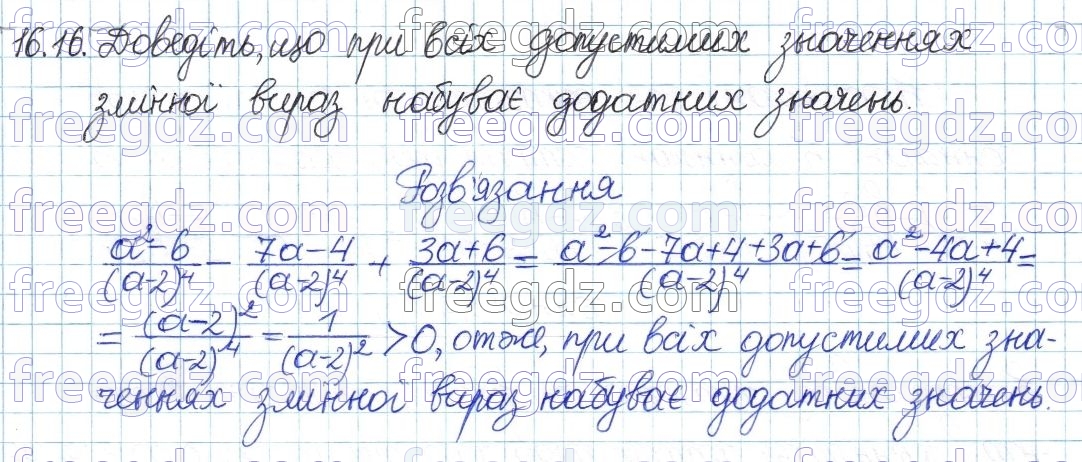 16.16. Доведіть, що при всіх допустимих значеннях
змінної вираз набуває додатних значень.
Розв'язання
(a²-6)/(a-2)⁴ - (7a-4)/(a-2)⁴ + (3a+6)/(a-2)⁴ = (a²-6-7a+4+3a+6)/(a-2)⁴ = (a²-4a+4)/(a-2)⁴ =
= (a-2)²/(a-2)⁴ = 1/(a-2)² > 0, отже, при всіх допустимих зна-
ченнях змінної вираз набуває додатних значень.
freegdz.com